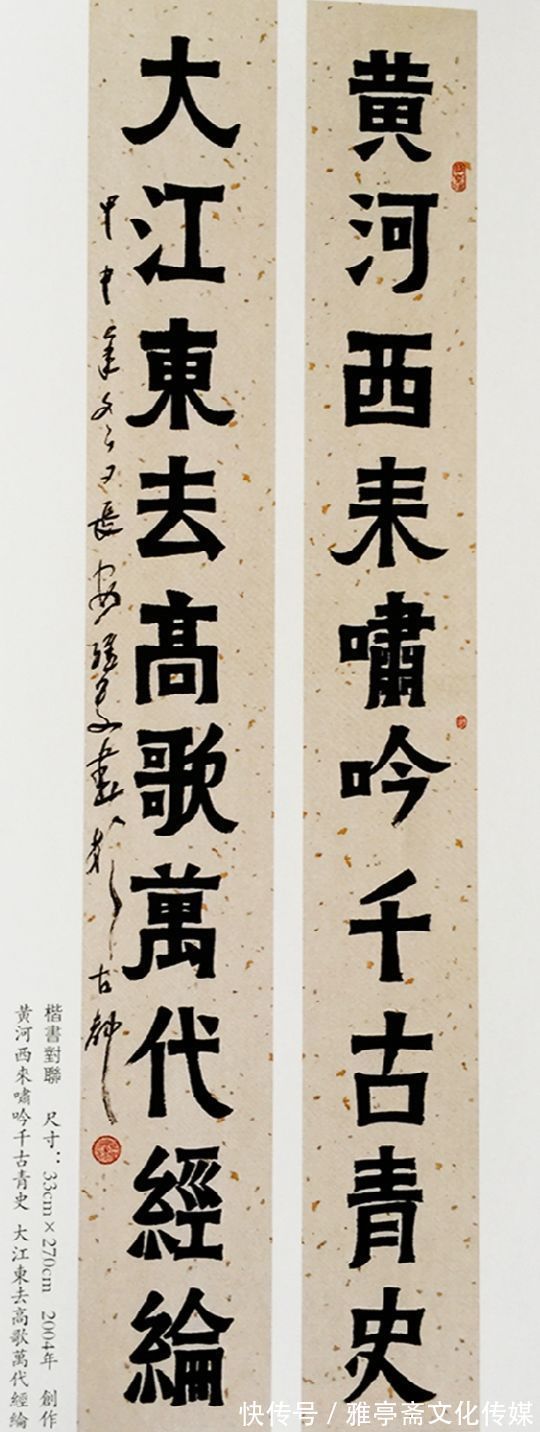 黄河西来嘯吟千古青史
大江東去高歌萬代經綸
甲申年 長安 書於古都
楷書對聯 尺寸：33cm×270cm 2004年 創作
黄河西来嘯吟千古青史 大江東去高歌萬代經綸
快传号/雅亭斋文化传媒